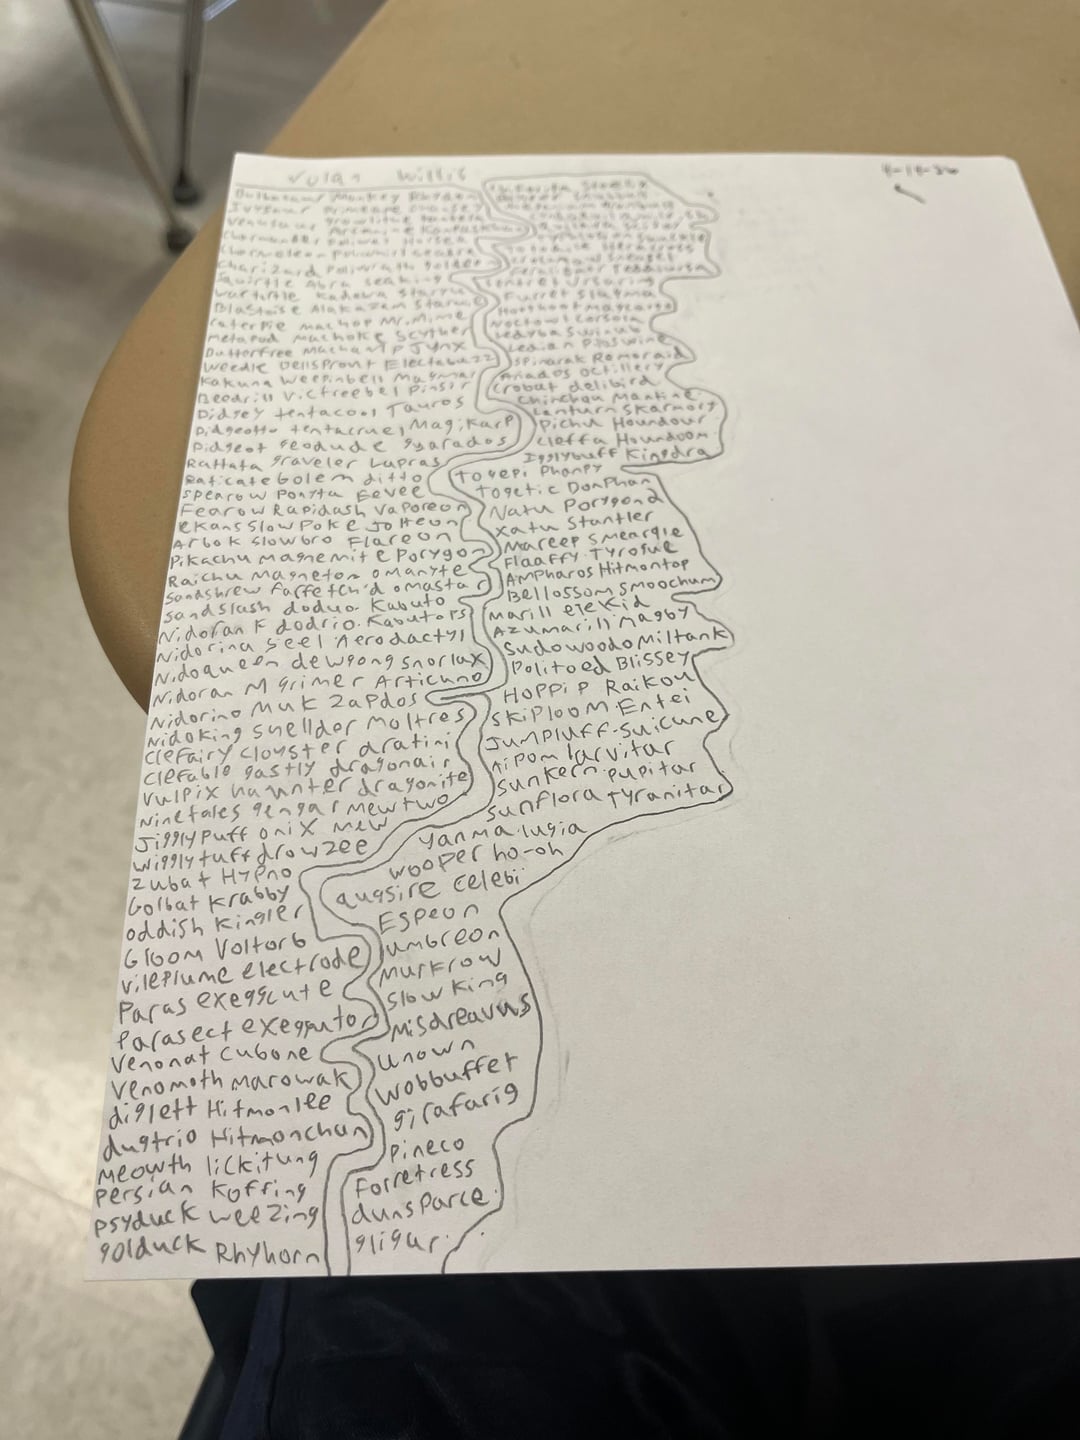 Willis
Bulbasaur Mankey Rhydon
Ivysaur Primeape Chansey
Venusaur growlithe tangela
Charmander Poliwag Horsea
Charmeleon Poliwhirl seadra
Charizard Poliwrath goldeen
Squirtle Abra seaking
wartortle Kadabra Staryu
Blastoise Alakazam Starmie
caterpie machop Mr.Mime
metapod machoke scyther
Butterfree Machamp Jynx
weedle bellsprout Electabuzz
Kakuna Weepinbell Magmar
Beedrill Victreebel Pinsir
Pidgey tentacool Tauros
Pidgeotto tentacruel Magikarp
Pidgeot geodude gyarados
Rattata graveler Lapras
Raticate Golem ditto
Spearow Ponyta Eevee
Fearow Rapidash Vaporeon
ekans Slowpoke Jolteon
Arbok Slowbro Flareon
Pikachu magnemite Porygon
Raichu magneton omanyte
Sandshrew farfetch'd omastar
Sandslash doduo Kabuto
Nidoran F dodrio Kabutops
Nidorina seel Aerodactyl
Nidoqueen dewgong snorlax
Nidoran M grimer Articuno
Nidorino Muk Zapdos
Nidoking shellder moltres
Clefairy cloyster dratini
Clefable gastly dragonair
Vulpix haunter dragonite
Ninetales gengar mewtwo
Jigglypuff onix mew
wigglytuff drowzee
Zubat Hypno
Golbat Krabby
oddish Kingler
Gloom Voltorb
vileplume electrode
Paras exeggcute
Parasect exeggutor
Venonat cubone
Venomoth marowak
diglett Hitmonlee
dugtrio Hitmonchan
meowth lickitung
Persian Koffing
Psyduck weezing
golduck Rhyhorn
Furret Slugma
Hoothoot magcargo
Noctowl Corsola
Ledyba Swinub
Ledian Piloswine
Spinarak Remoraid
Ariados Octillery
Crobat delibird
Chinchou Mantine
Lanturn Skarmory
Pichu Houndour
Cleffa Houndoom
Igglybuff Kingdra
Togepi Phanpy
Togetic Donphan
Natu Porygon2
Xatu Stantler
Mareep Smeargle
Flaaffy Tyrogue
Ampharos Hitmontop
Bellossom Smoochum
marill elekid
Azumarill Magby
Sudowoodo Miltank
Politoed Blissey
Hoppip Raikou
Skiploom Entei
Jumpluff-Suicune
Aipom larvitar
Sunkern pupitar
Sunflora tyranitar
yanma lugia
wooper ho-oh
quagsire celebi
Espeon
umbreon
Murkrow
Slowking
Misdreavus
unown
wobbuffet
girafarig
Pineco
Forretress
dunsparce
gligar